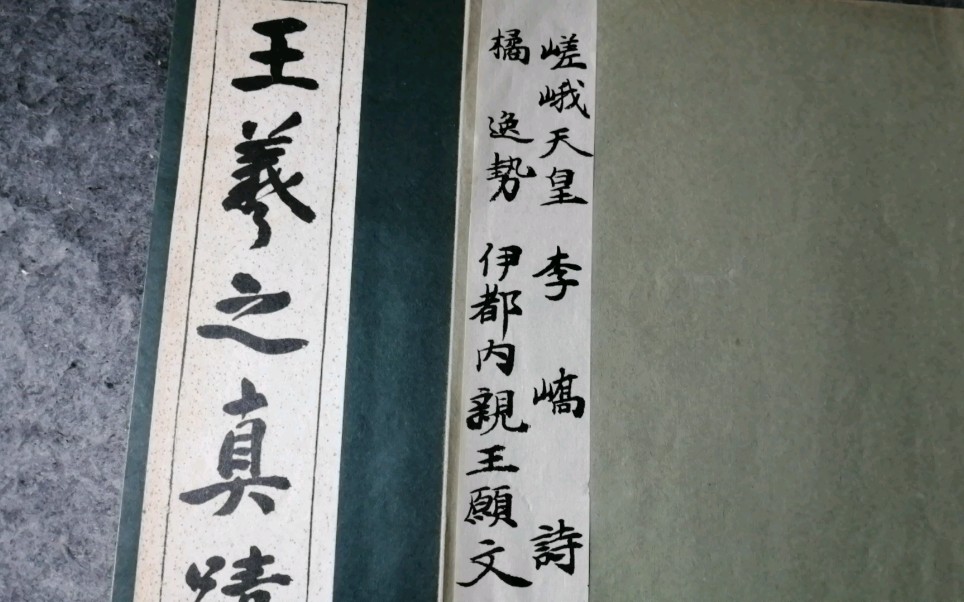 王羲之真蹟
嵯峨天皇 李嶠詩
橘逸勢 伊都内親王願文